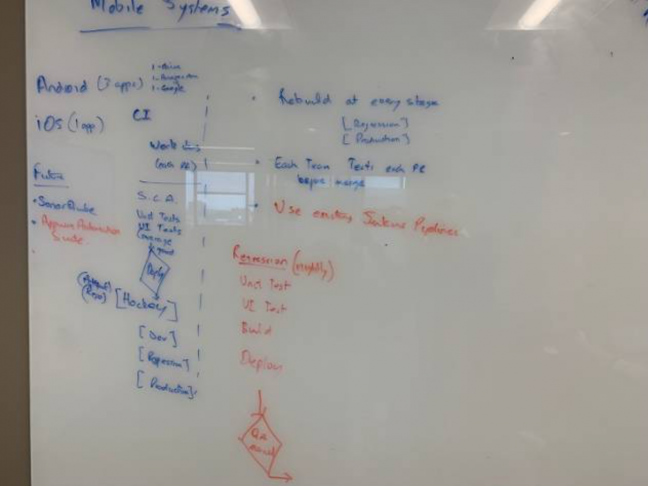 Mobile Systems
Android (3 apps)
1 - Amazon
1 - Google
iOS (1 app)
CI
Work
(each PR)
Future
• SonarQube
• Appium Automation
Suite
S.C.A.
Unit Tests
UI Tests
Coverage
Deploy
[Hockey]
[Dev]
[Regression]
[Production]
• Rebuild at every stage
[Regression]
[Production]
• Each Team Tests each PR
before merge
• Use existing Jenkins Pipelines
Regression (nightly)
Unit Test
UI Test
Build
Deploy
QA